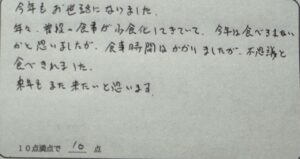 今年もお世話になりました。
年々、普段の食事が少食化してきていて、今年は食べきれない
かと思いましたが、食事時間はかかりましたが、不思議と
食べきれました。
来年もまた来たいと思います。
10点満点で 10 点